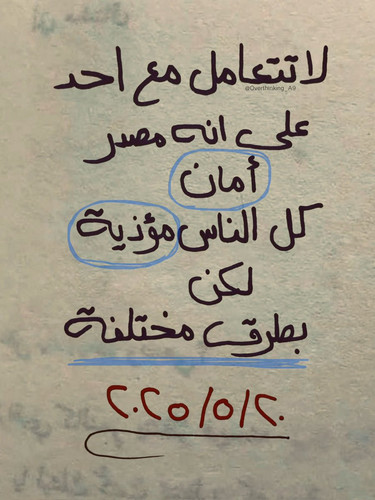 لا تتعامل مع احد
@Overthinking_A9
على انه مصدر
أمان
كل الناس مؤذية
لكن
بطرق مختلفة
٢٠٢٥/٥/٢٠